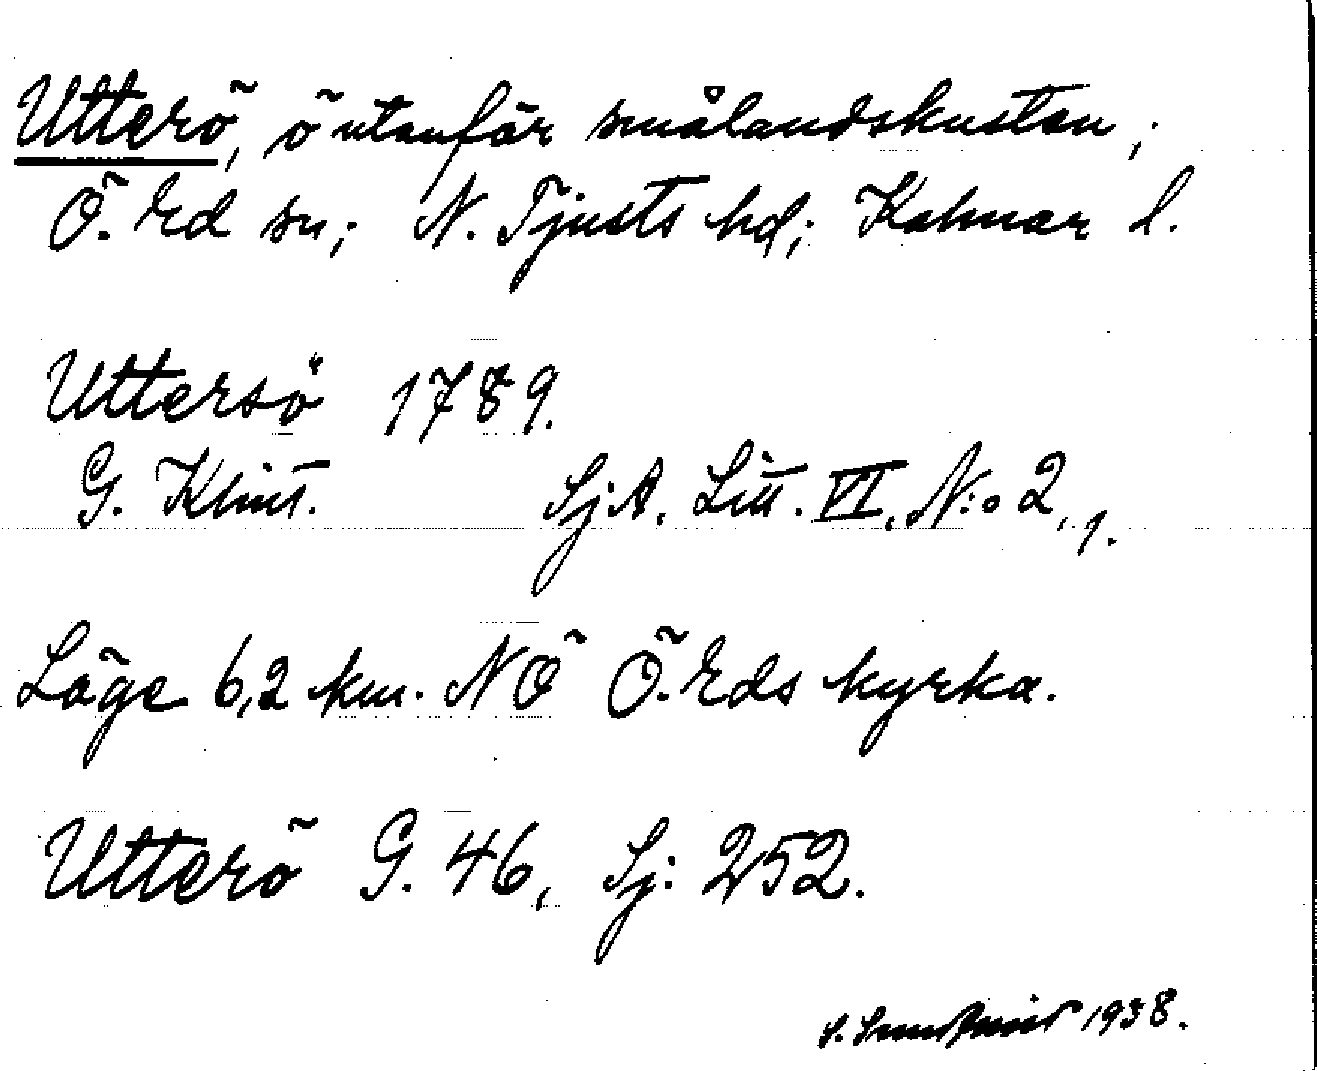 Utterö, ö utanför smålandskusten;
Ö. Ed sn; N. Tjusts hd; Kalmar l.
Uttersö 1789.
G. Klint. Sj.A. Litt. VI, N:o 2, 1.
Läge 6,2 km. NÖ Ö. Eds kyrka.
Utterö G. 46, Sj: 252.
S. Sundqvist 1938.